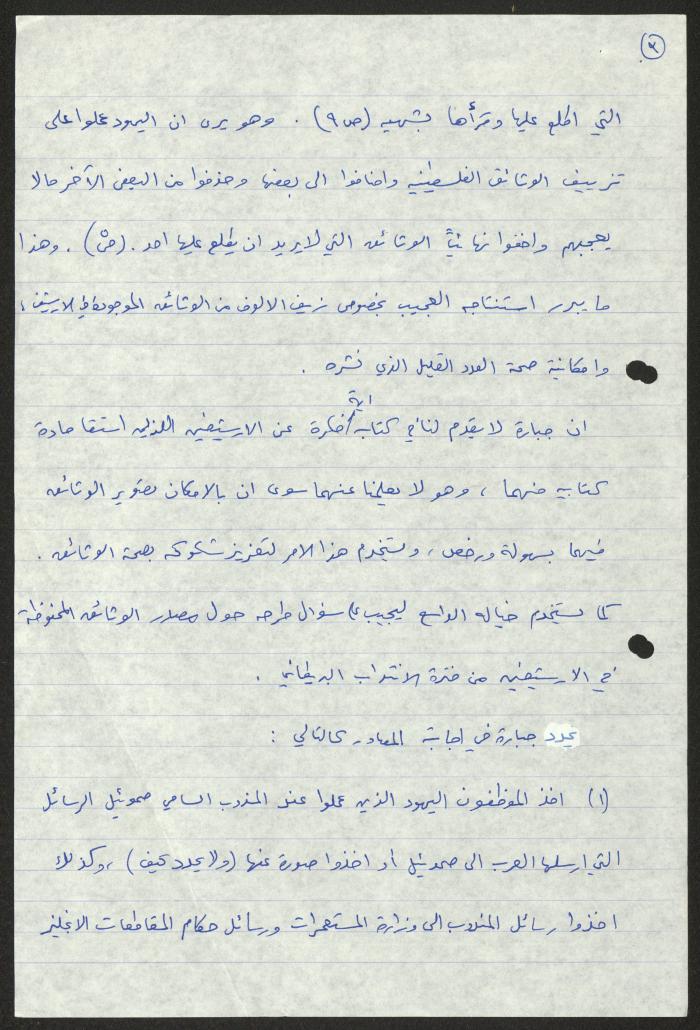 ٢
التي اطلع عليها وقرأها بشهيه (ص ٩) . وهو يرى ان اليهود عملوا على
تزييف الوثائق الفلسطينيه واضافوا الى بعضها وحذفوا من البعض الآخر مالا
يعجبهم واخفوا نهائياً الوثائق التي لا يريد ان يطلع عليها احد . (ص) . وهذا
ما يبرر استنتاجه العجيب بخصوص زيف الالوف من الوثائق الموجودة في الارشيف ،
وامكانية صحة العدد القليل الذي نشره .
ان جبارة لا يقدم لنا في كتابه اية فكرة عن الارشيفين اللذين استقا مادة
كتابيه منهما ، وهو لا يعلمنا عنهما سوى ان بالامكان تصوير الوثائق
فيهما بسهولة ورخص ، ويستخدم هذا الامر لتعزيز شكوكه بصحة الوثائق .
كما يستخدم خياله الواسع ليجيب على سؤال طرحه حول مصادر الوثائق المحفوظة
في الارشيفين من فترة الانتداب البريطاني .
يحدد جبارة في اجابته المصادر كالتالي :
(١) اخذ الموظفون اليهود الذين عملوا عند المندوب السامي صموئيل الرسائل
التي ارسلها العرب الى صموئيل أو اخذوا صورة عنها (ولا يحدد كيف) ، وكذلك
اخذوا رسائل المندوب الى وزارة المستعمرات ورسائل حكام المقاطعات الانجليز